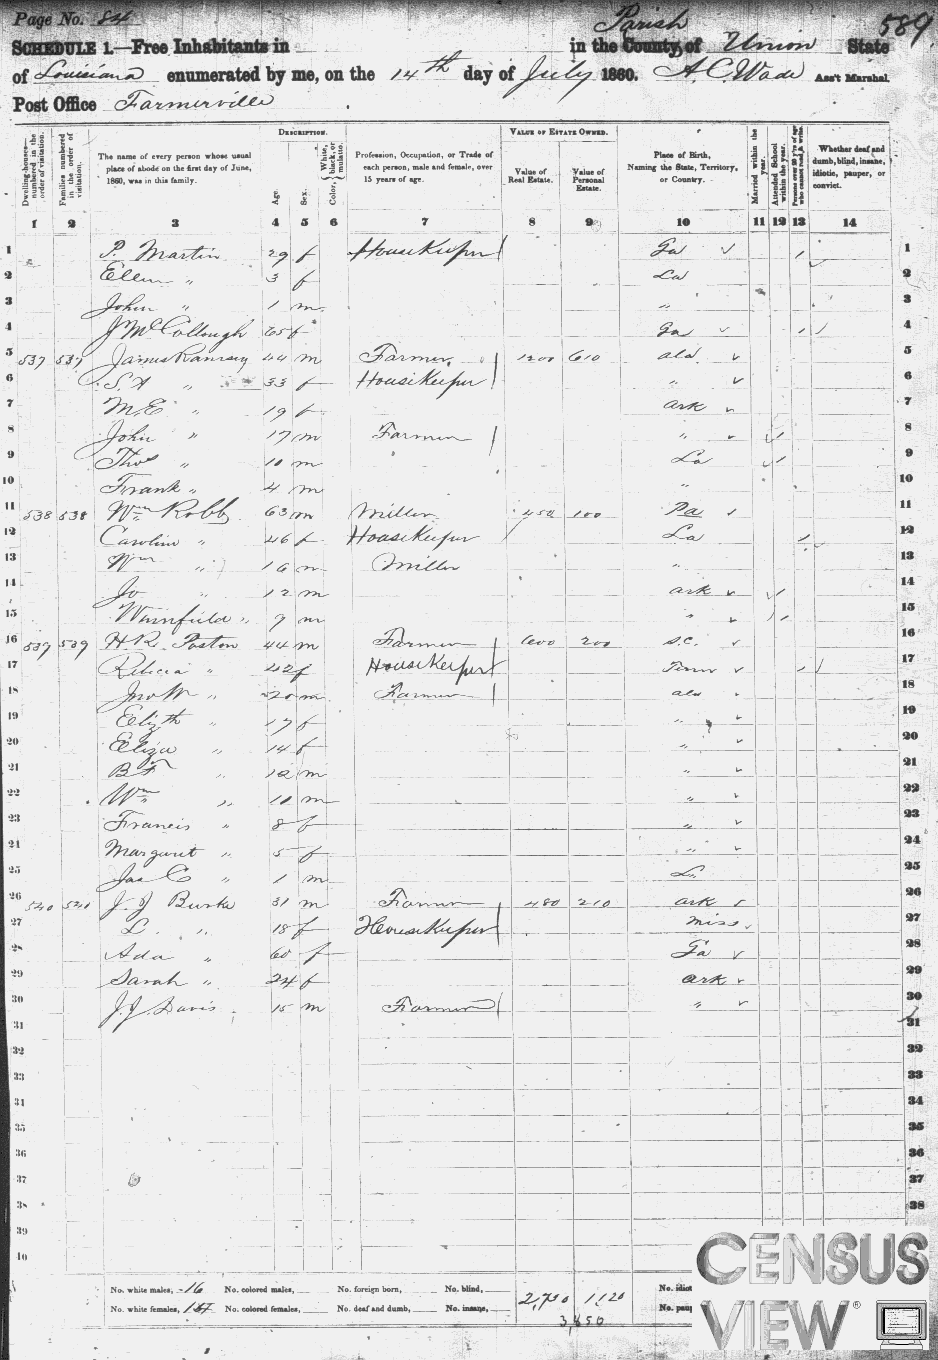 Page No. 84
Parish
589
SCHEDULE 1.—Free Inhabitants in in the County of Union State
of Louisiana enumerated by me, on the 14th day of July 1860. A.C. Wade Ass't Marshal.
Post Office Farmerville
DESCRIPTION. VALUE OF ESTATE OWNED.
Dwelling-houses—numbered in the order of visitation.
Families numbered in the order of visitation.
The name of every person whose usual place of abode on the first day of June, 1860, was in this family.
Age.
Sex.
Color, { White, black, or mulatto.
Profession, Occupation, or Trade of each person, male and female, over 15 years of age.
Value of Real Estate.
Value of Personal Estate.
Place of Birth, Naming the State, Territory, or Country.
Married within the year.
Attended School within the year.
Persons over 20 y'rs of age who cannot read & write.
Whether deaf and dumb, blind, insane, idiotic, pauper, or convict.
1 2 3 4 5 6 7 8 9 10 11 12 13 14
1 P. Martin 29 f HouseKeeper Ga 1
2 Ellen " 3 f La 2
3 John " 1 m " 3
4 J McCollough 65 f Ga 4
5 537 537 James Ramsey 44 m Farmer 1200 610 ala 5
6 S A " 33 f HouseKeeper " 6
7 M E " 19 f ark 7
8 John " 17 m Farmer " 8
9 Thos " 10 m La 9
10 Frank " 4 m " 10
11 538 538 Wm Robb 63 m Miller 450 100 Pa 11
12 Caroline " 46 f HouseKeeper La 12
13 Wm " 16 m Miller " 13
14 Jo " 12 m ark 14
15 Winnfield " 9 m " 15
16 539 539 H.R. Poston 44 m Farmer 600 200 S.C. 16
17 Rebecia " 42 f HouseKeeper Tenn 17
18 Jno W " 20 m Farmer ala 18
19 Elizth " 17 f " 19
20 Eliza " 14 f " 20
21 B F " 12 m " 21
22 Wm " 10 m " 22
23 Francis " 8 f " 23
24 Margaret " 5 f " 24
25 Jas C " 1 m La 25
26 540 540 J. J Burke 31 m Farmer 480 210 ark 26
27 L. " 18 f HouseKeeper miss 27
28 Ada " 60 f Ga 28
29 Sarah " 24 f ark 29
30 J.J Davis 15 m Farmer " 30
31 31
32 32
33 33
34 34
35 35
36 36
37 37
38 38
39
40
No. white males, 16 No. colored males, No. foreign born, No. blind, No. idiot
No. white females, 14 No. colored females, No. deaf and dumb, No. insane, 2,730 1120 No. paup
3,850
CENSUS
VIEW®